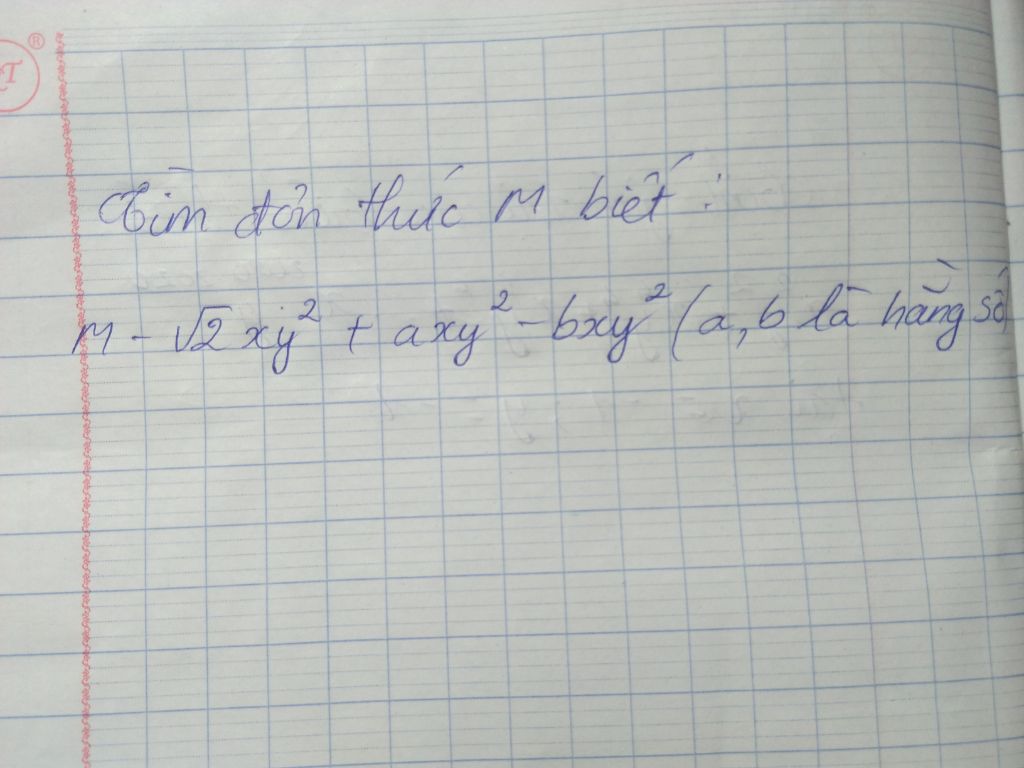 Tìm đơn thức M biết :
M - √2 xy² + axy² - bxy² (a, b là hằng số)